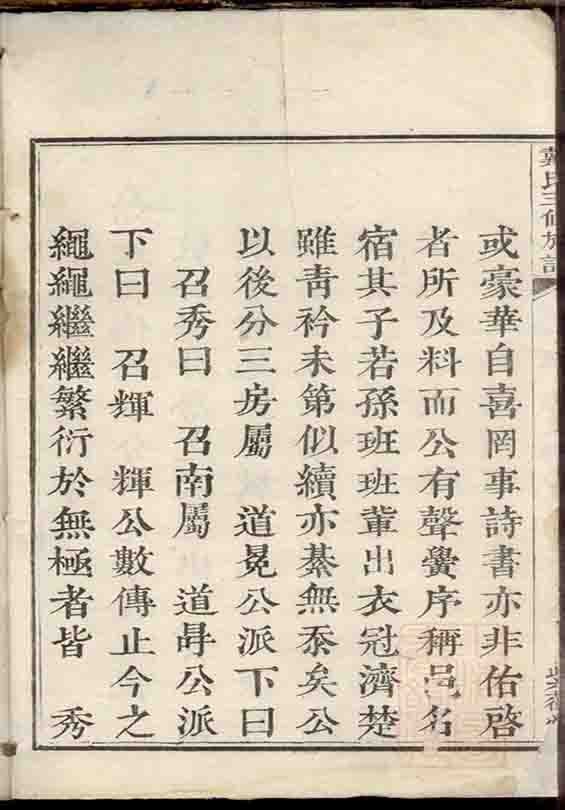 戴氏三修族譜
或豪華自喜罔事詩書亦非佑啓
者所及料而公有聲黌序稱邑名
宿其子若孫班班輩出衣冠濟楚
雖靑衿未第似續亦綦無忝矣公
以後分三房屬　道冕公派下曰
召秀曰　召南屬　道㝵公派
下曰　召輝　輝公數傳止今之
繩繩繼繼繁衍於無極者皆　秀